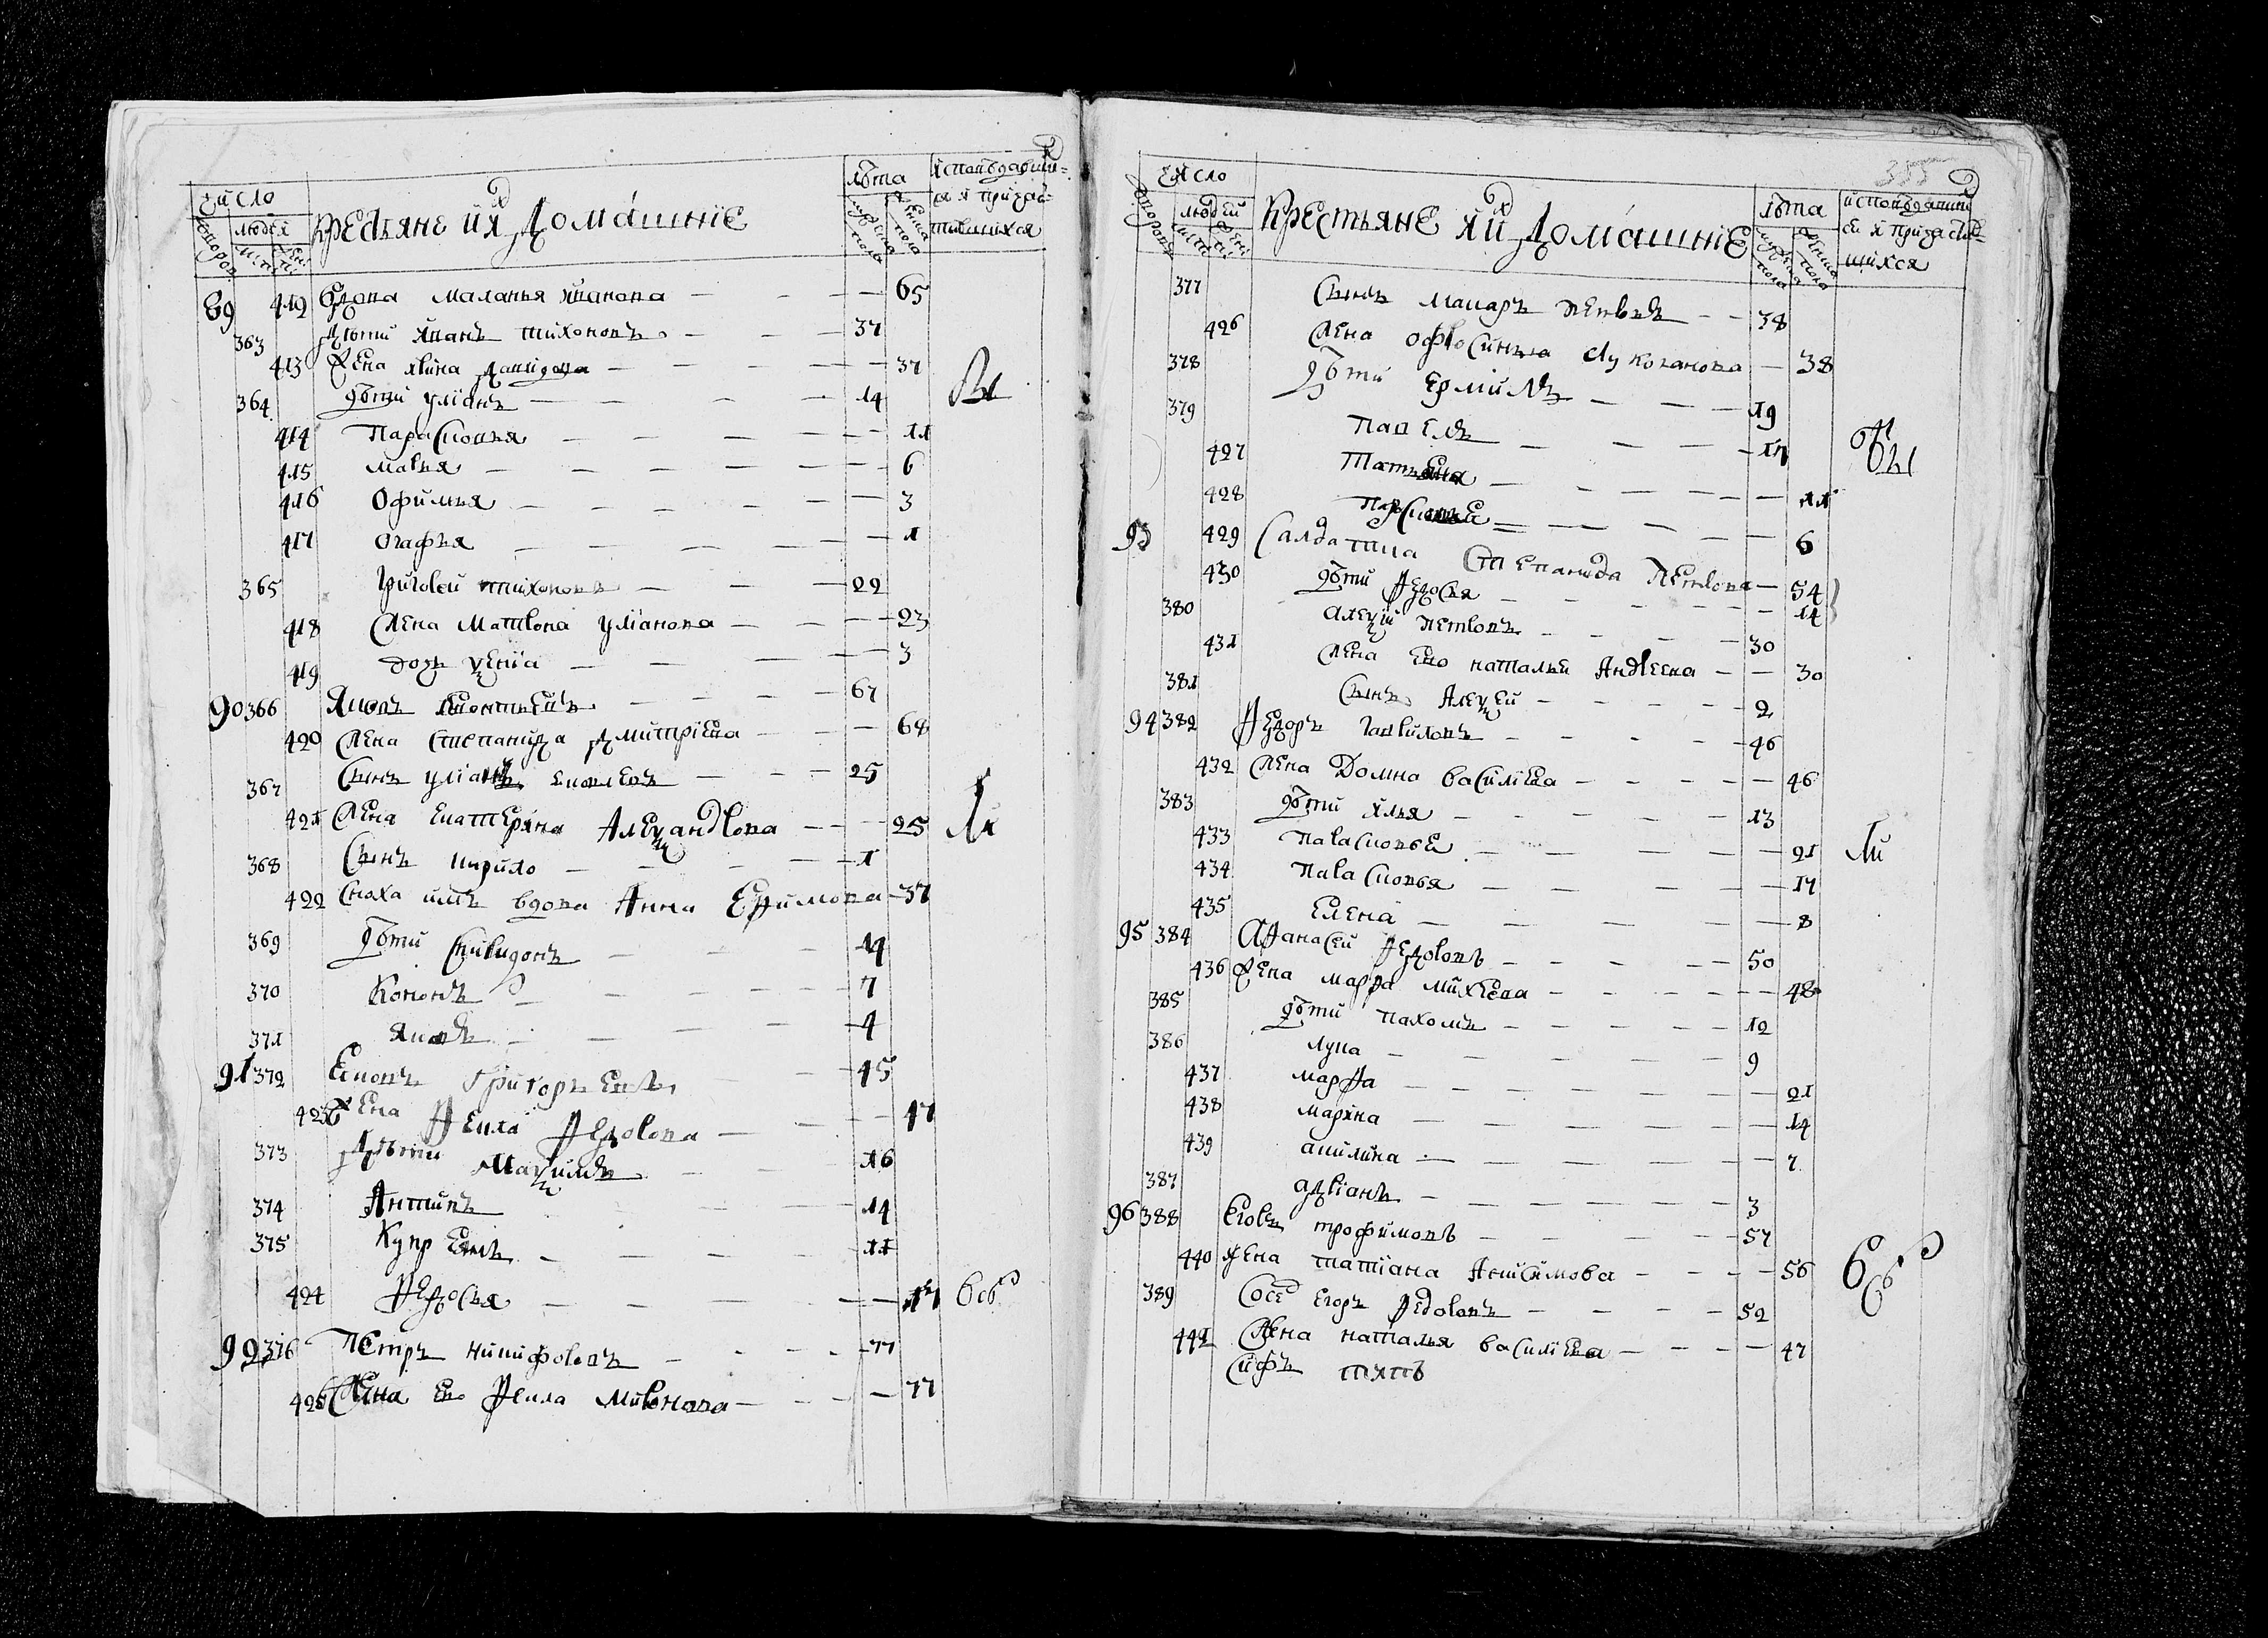 число
людей
дворов
крестьяне и их домашние
лѣта
мужеска пола
женска пола
исповѣдавши-
ся и причас-
тившихся
89 412 вдова маланья иванова 65
363 дѣти иванъ тихоновъ 37
413 жена ирина давидова 37
364 дѣти улианъ 14
414 парасковья 11
415 марья 6
416 офимья 3
417 огафья 1
365 григорей тихоновъ 22
418 жена матрона улианова 23
419 дочь ксенiа 3
90 366 яковъ леонтьевъ 67
420 жена степанида дмитрiева 68
367 сынъ улианъ яковлевъ 25
421 жена екатерина александрова 25
368 сынъ кирило 1
422 сноха ихъ вдова анна ефимова 37
369 дѣти спиридонъ 14
370 кононъ 7
371 яковъ 4
91 372 григорьевъ 45
423 жена фекла федорова 47
373 дѣти максимъ 16
374 антипъ 14
375 куприянъ 11
424 федосья 17
92 376 петръ никифоровъ 77
425 жена ево фекла миронова 77
355
число
людей
дворов
крестьяне и их домашние
лѣта
мужеска пола
женска пола
исповѣдавши
ся и причастив-
шихся
377 сынъ макаръ петровъ 38
426 жена офросинья лукоянова 38
378 дѣти ермилъ 19
379 павелъ 17
427 татьяна 11
428 парасковья 6
93 429 салдатка степанида петрова 54
430 дѣти федосья 14
380 алексѣй петровъ 30
431 жена ево наталья андреева 30
381 сынъ алексей 2
94 382 федоръ гавриловъ 46
432 жена домна василiева 46
383 дѣти илья 13
433 парасковья 21
434 парасковья 17
435 елена 8
95 384 афанасей федоровъ 50
436 жена марфа михеева 48
385 дѣти пахомъ 12
386 лука 9
437 марфа 21
438 марина 14
439 акилина 7
387 адрiанъ 3
96 388 егоръ трофимовъ 57
440 жена татiана анисимова 56
389 сосед егоръ федоровъ 52
441 жена наталья василiева 47